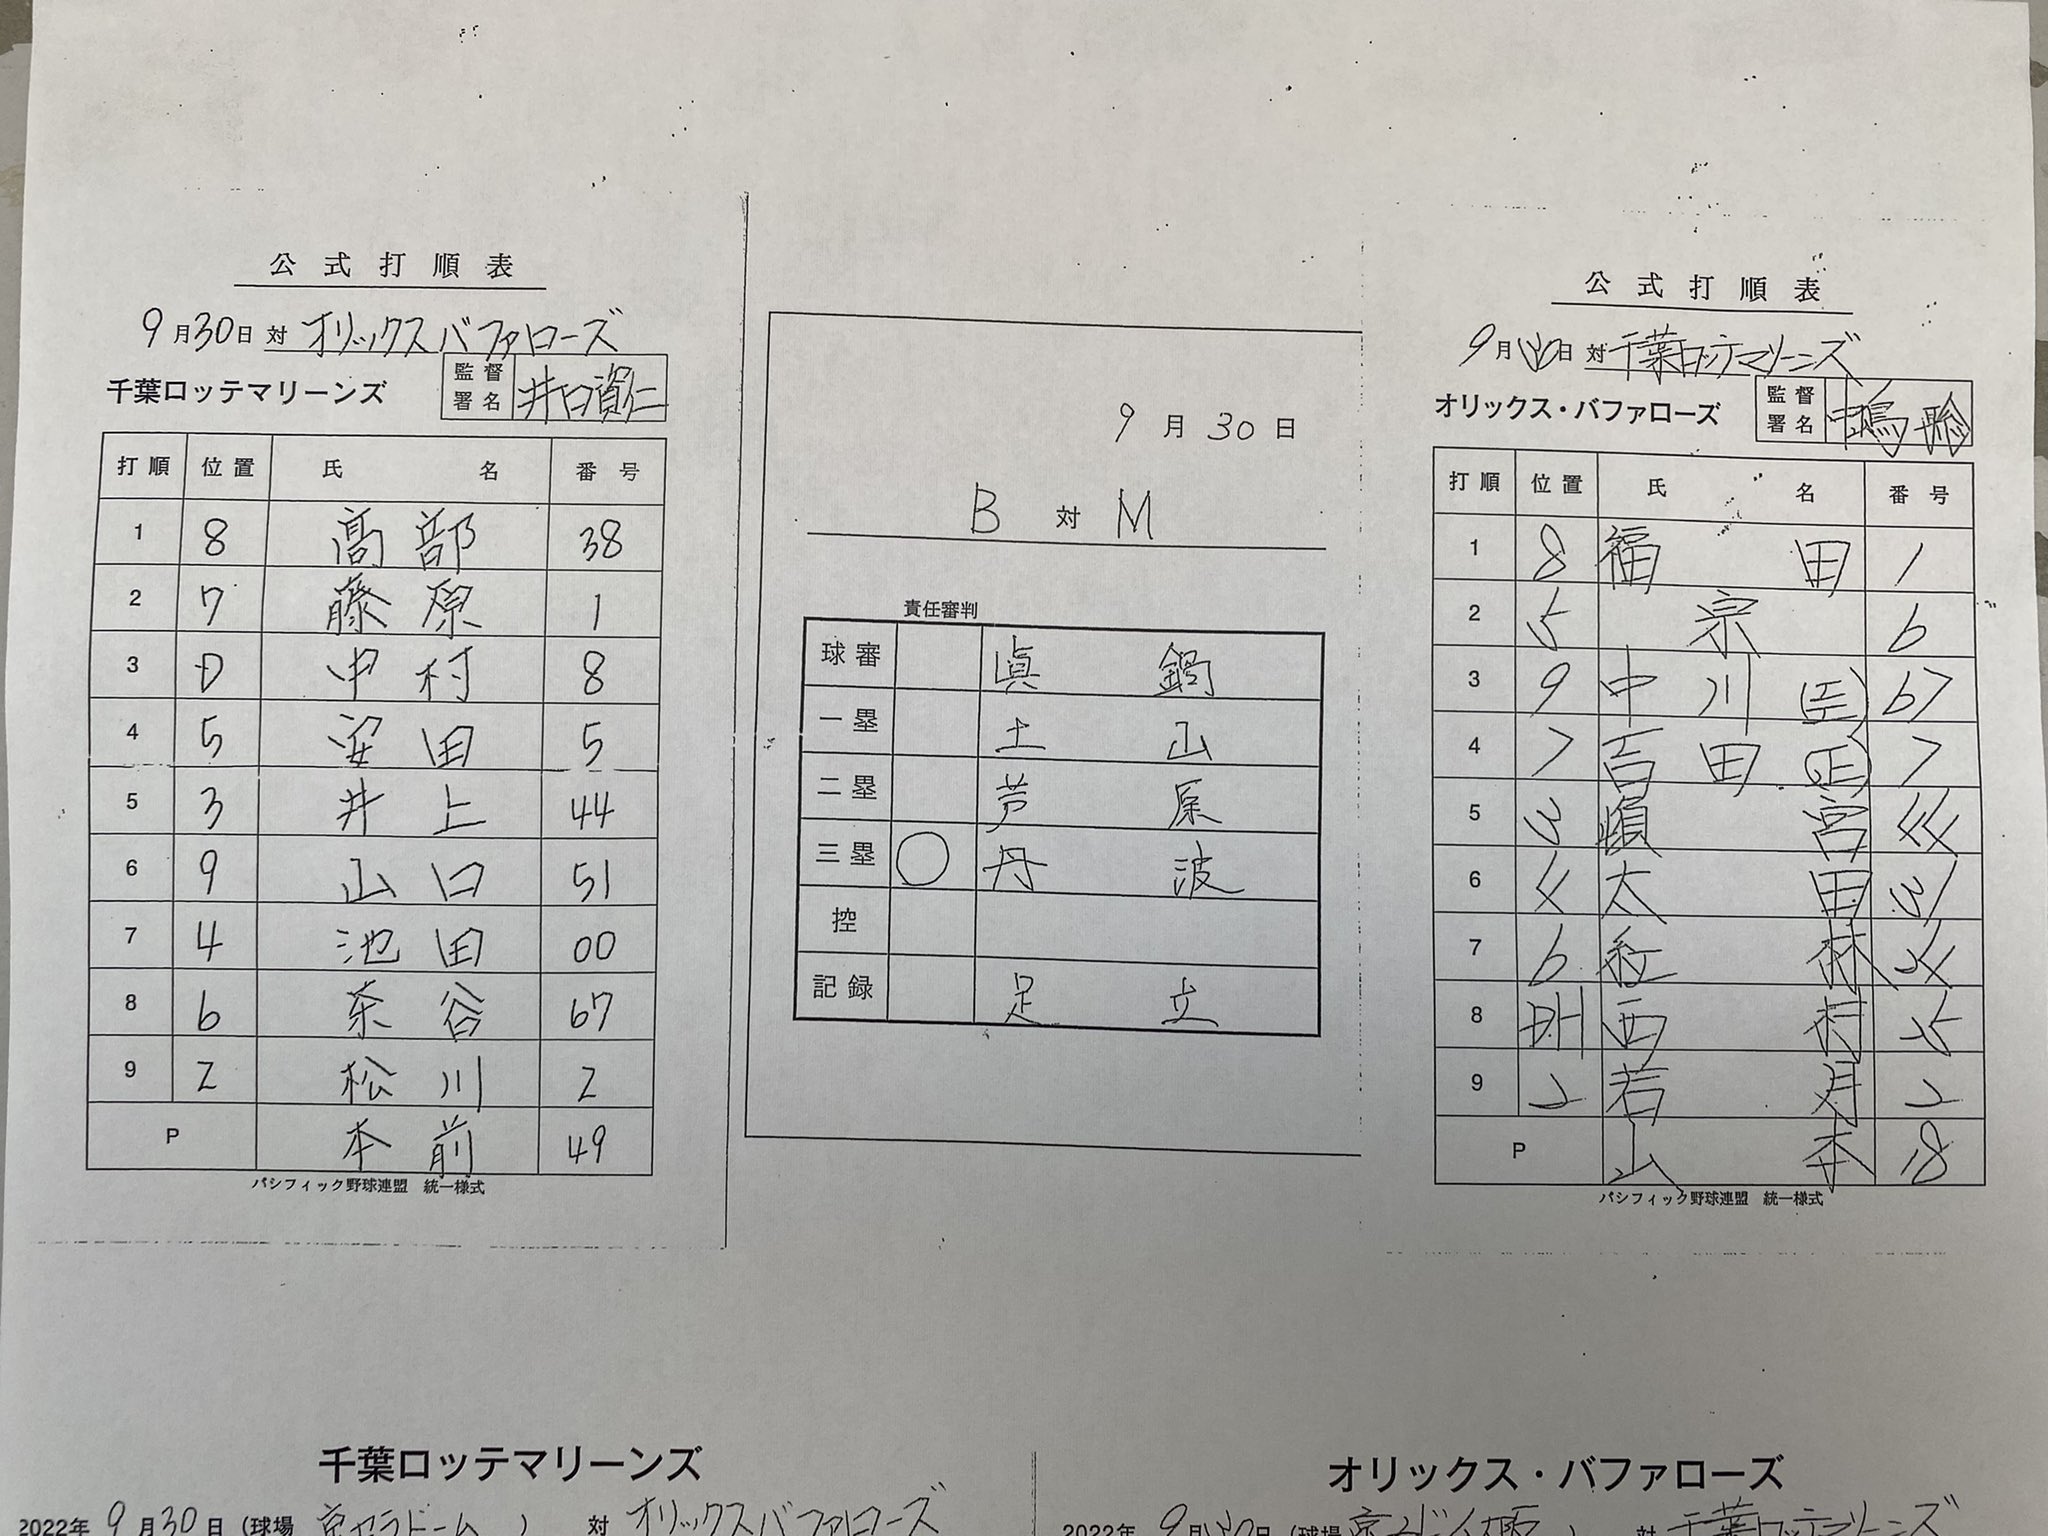 公式打順表
9月30日 対 オリックスバファローズ
千葉ロッテマリーンズ 監督署名 井口資仁
打順 位置 氏名 番号
1 8 髙部 38
2 7 藤原 1
3 D 中村 8
4 5 安田 5
5 3 井上 44
6 9 山口 51
7 4 池田 00
8 6 茶谷 67
9 2 松川 2
P 本前 49
パシフィック野球連盟 統一様式
9月30日
B 対 M
責任審判
球審 眞鍋
一塁 土山
二塁 芦原
三塁 ○ 丹波
控
記録 足立
公式打順表
9月30日 対 千葉ロッテマリーンズ
オリックス・バファローズ 監督署名 中嶋聡
打順 位置 氏名 番号
1 8 福田 1
2 5 宗 6
3 9 中川(圭) 67
4 7 吉田(正) 7
5 3 頓宮 44
6 4 太田 31
7 6 紅林 24
8 DH 西村 25
9 2 若月 2
P 山本 18
パシフィック野球連盟 統一様式
千葉ロッテマリーンズ
2022年 9月30日 (球場 京セラドーム) 対 オリックスバファローズ
オリックス・バファローズ
2022年 9月30日 (球場 京セラドーム大阪) 対 千葉ロッテマリーンズ